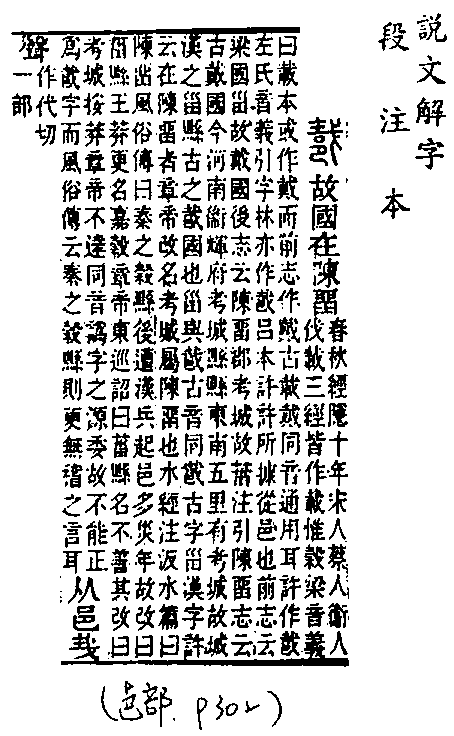 説文解字
段注本
𢧵故國在陳畱
春秋經隱十年宋人蔡人衞人
伐𢧵三經皆作載惟穀梁音義
曰載本或作戴而前志作戴古載戴同音通用耳許作𢧵
左氏音義引字林亦作𢧵呂本許許所據從邑也前志云
梁國甾故戴國後志云陳畱郡考城故菑注引陳畱志云
古戴國今河南衞輝府考城縣縣東南五里有考城故城
漢之甾縣古之𢧵國也甾與𢧵古音同𢧵古字甾漢字許
云在陳畱者章帝改名考城屬陳畱也水經注汳水篇曰
陳畱風俗傳曰秦之穀縣後遭漢兵起邑多災年故改曰
菑縣王莽更名嘉穀章帝東巡詔曰菑縣名不善其改曰
考城按莽章帝不達同音譌字之源委故不能正
爲𢧵字而風俗傳云秦之穀縣則更無稽之言耳从邑𢦏
聲
作代切
一部
(邑部. P302)